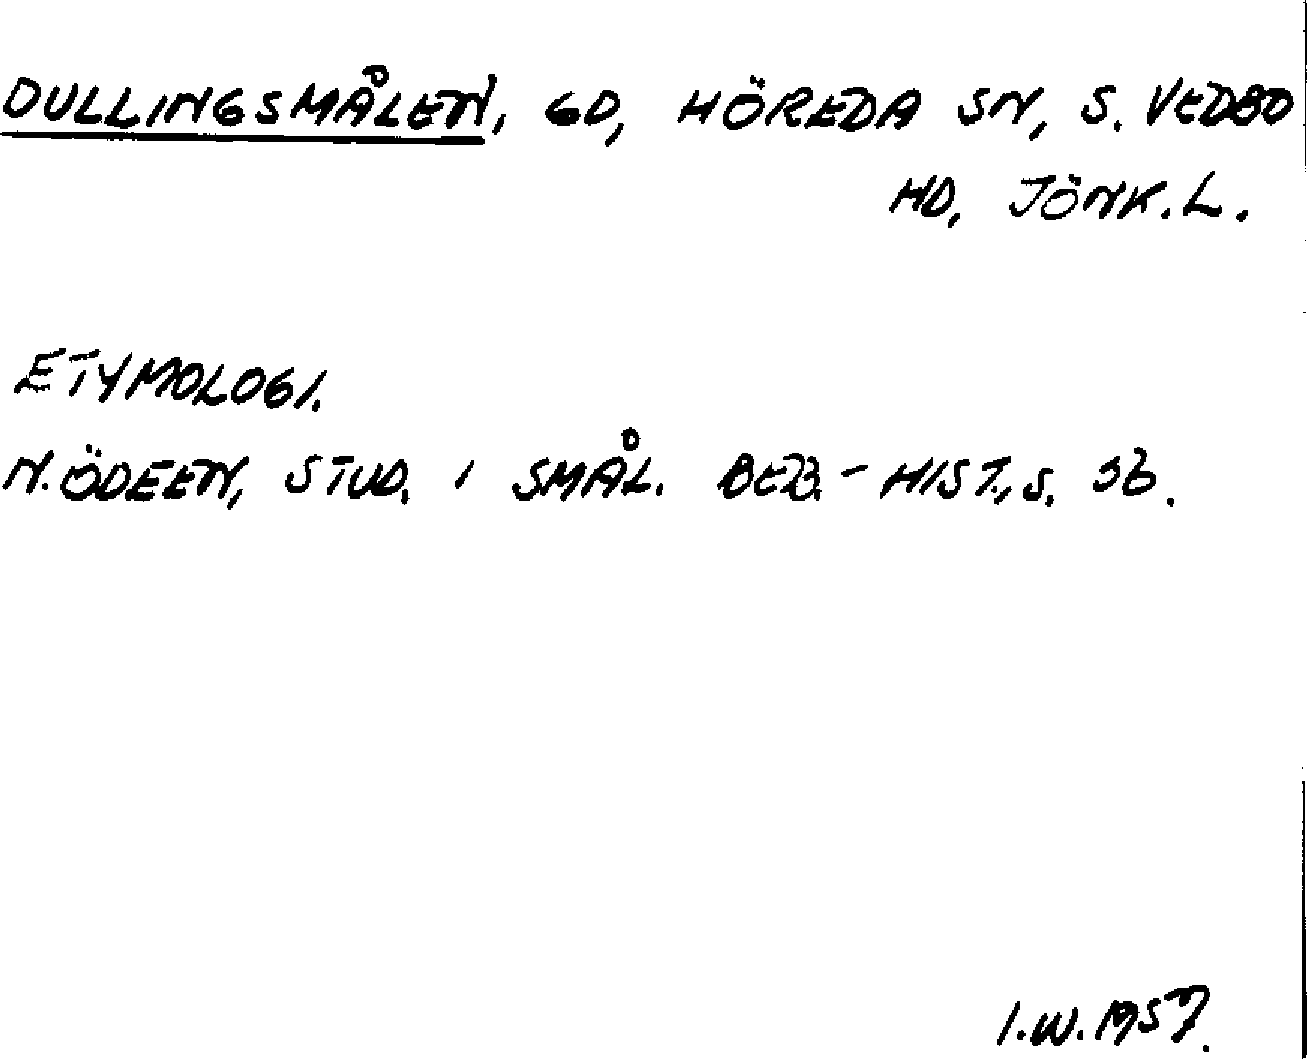 DULLINGSMÅLEN, GD, HÖREDA SN, S. VEDBO
HD, JÖNK.L.
ETYMOLOGI.
N. ÖDEEN, STUD. I SMÅL. BEB.-HIST., S. 36.
I.W. 1957.